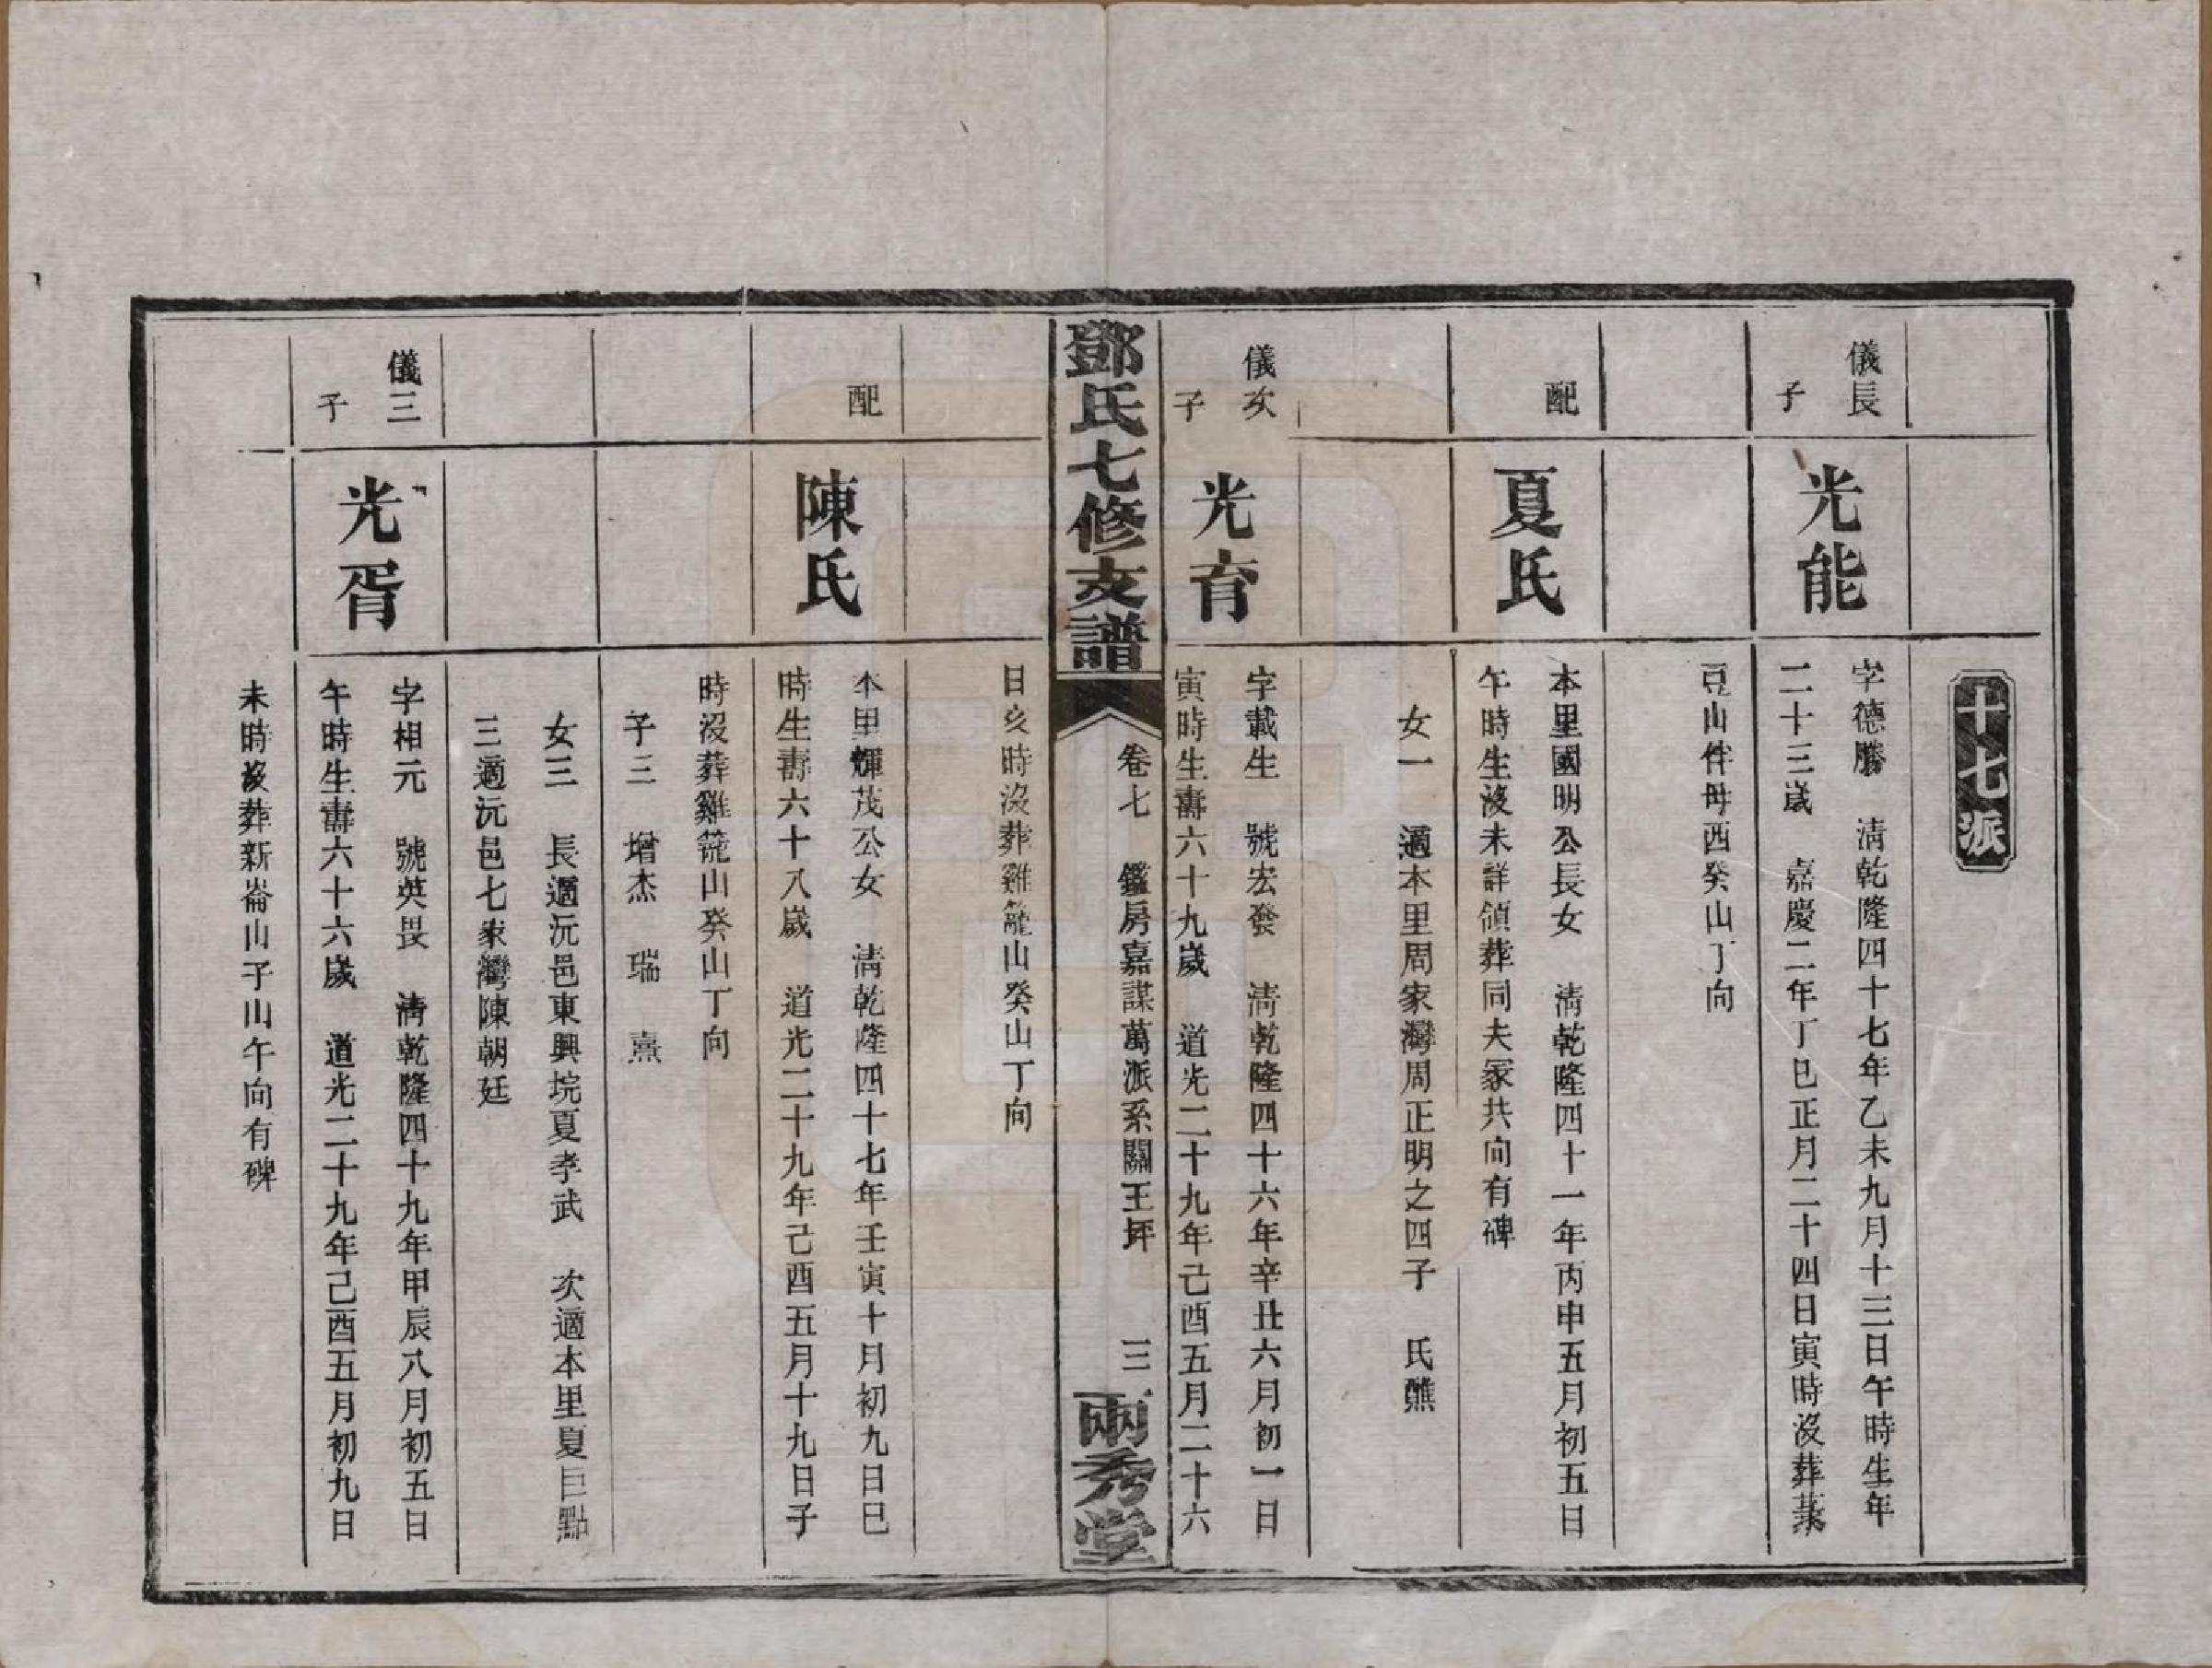 十七派
儀長子
光能
字德勝　清乾隆四十七年乙未九月十三日午時生年
二十三歲　嘉慶二年丁巳正月二十四日寅時沒葬蒸
豆山伴母西癸山丁向
配
夏氏
本里國明公長女　清乾隆四十一年丙申五月初五日
午時生沒未詳傾葬同夫冢共向有碑
女一　適本里周家灣周正明之四子　氏醮
儀次子
光育
字載生　號宏發　清乾隆四十六年辛丑六月初一日
寅時生壽六十九歲　道光二十九年己酉五月二十六
鄧氏七修支譜
卷七　鑑房嘉謀萬派系關王坪　三
兩秀堂
日亥時沒葬雞籠山癸山丁向
配
陳氏
本里輝茂公女　清乾隆四十七年壬寅十月初九日巳
時生壽六十八歲　道光二十九年己酉五月十九日子
時沒葬雞籠山癸山丁向
子三　增杰　瑞　熹
女三　長適沅邑東興垸夏孝武　次適本里夏巨點
三適沅邑七家灣陳朝廷
儀三子
光胥
字相元　號英畏　清乾隆四十九年甲辰八月初五日
午時生壽六十六歲　道光二十九年己酉五月初九日
未時沒葬新崙山子山午向有碑